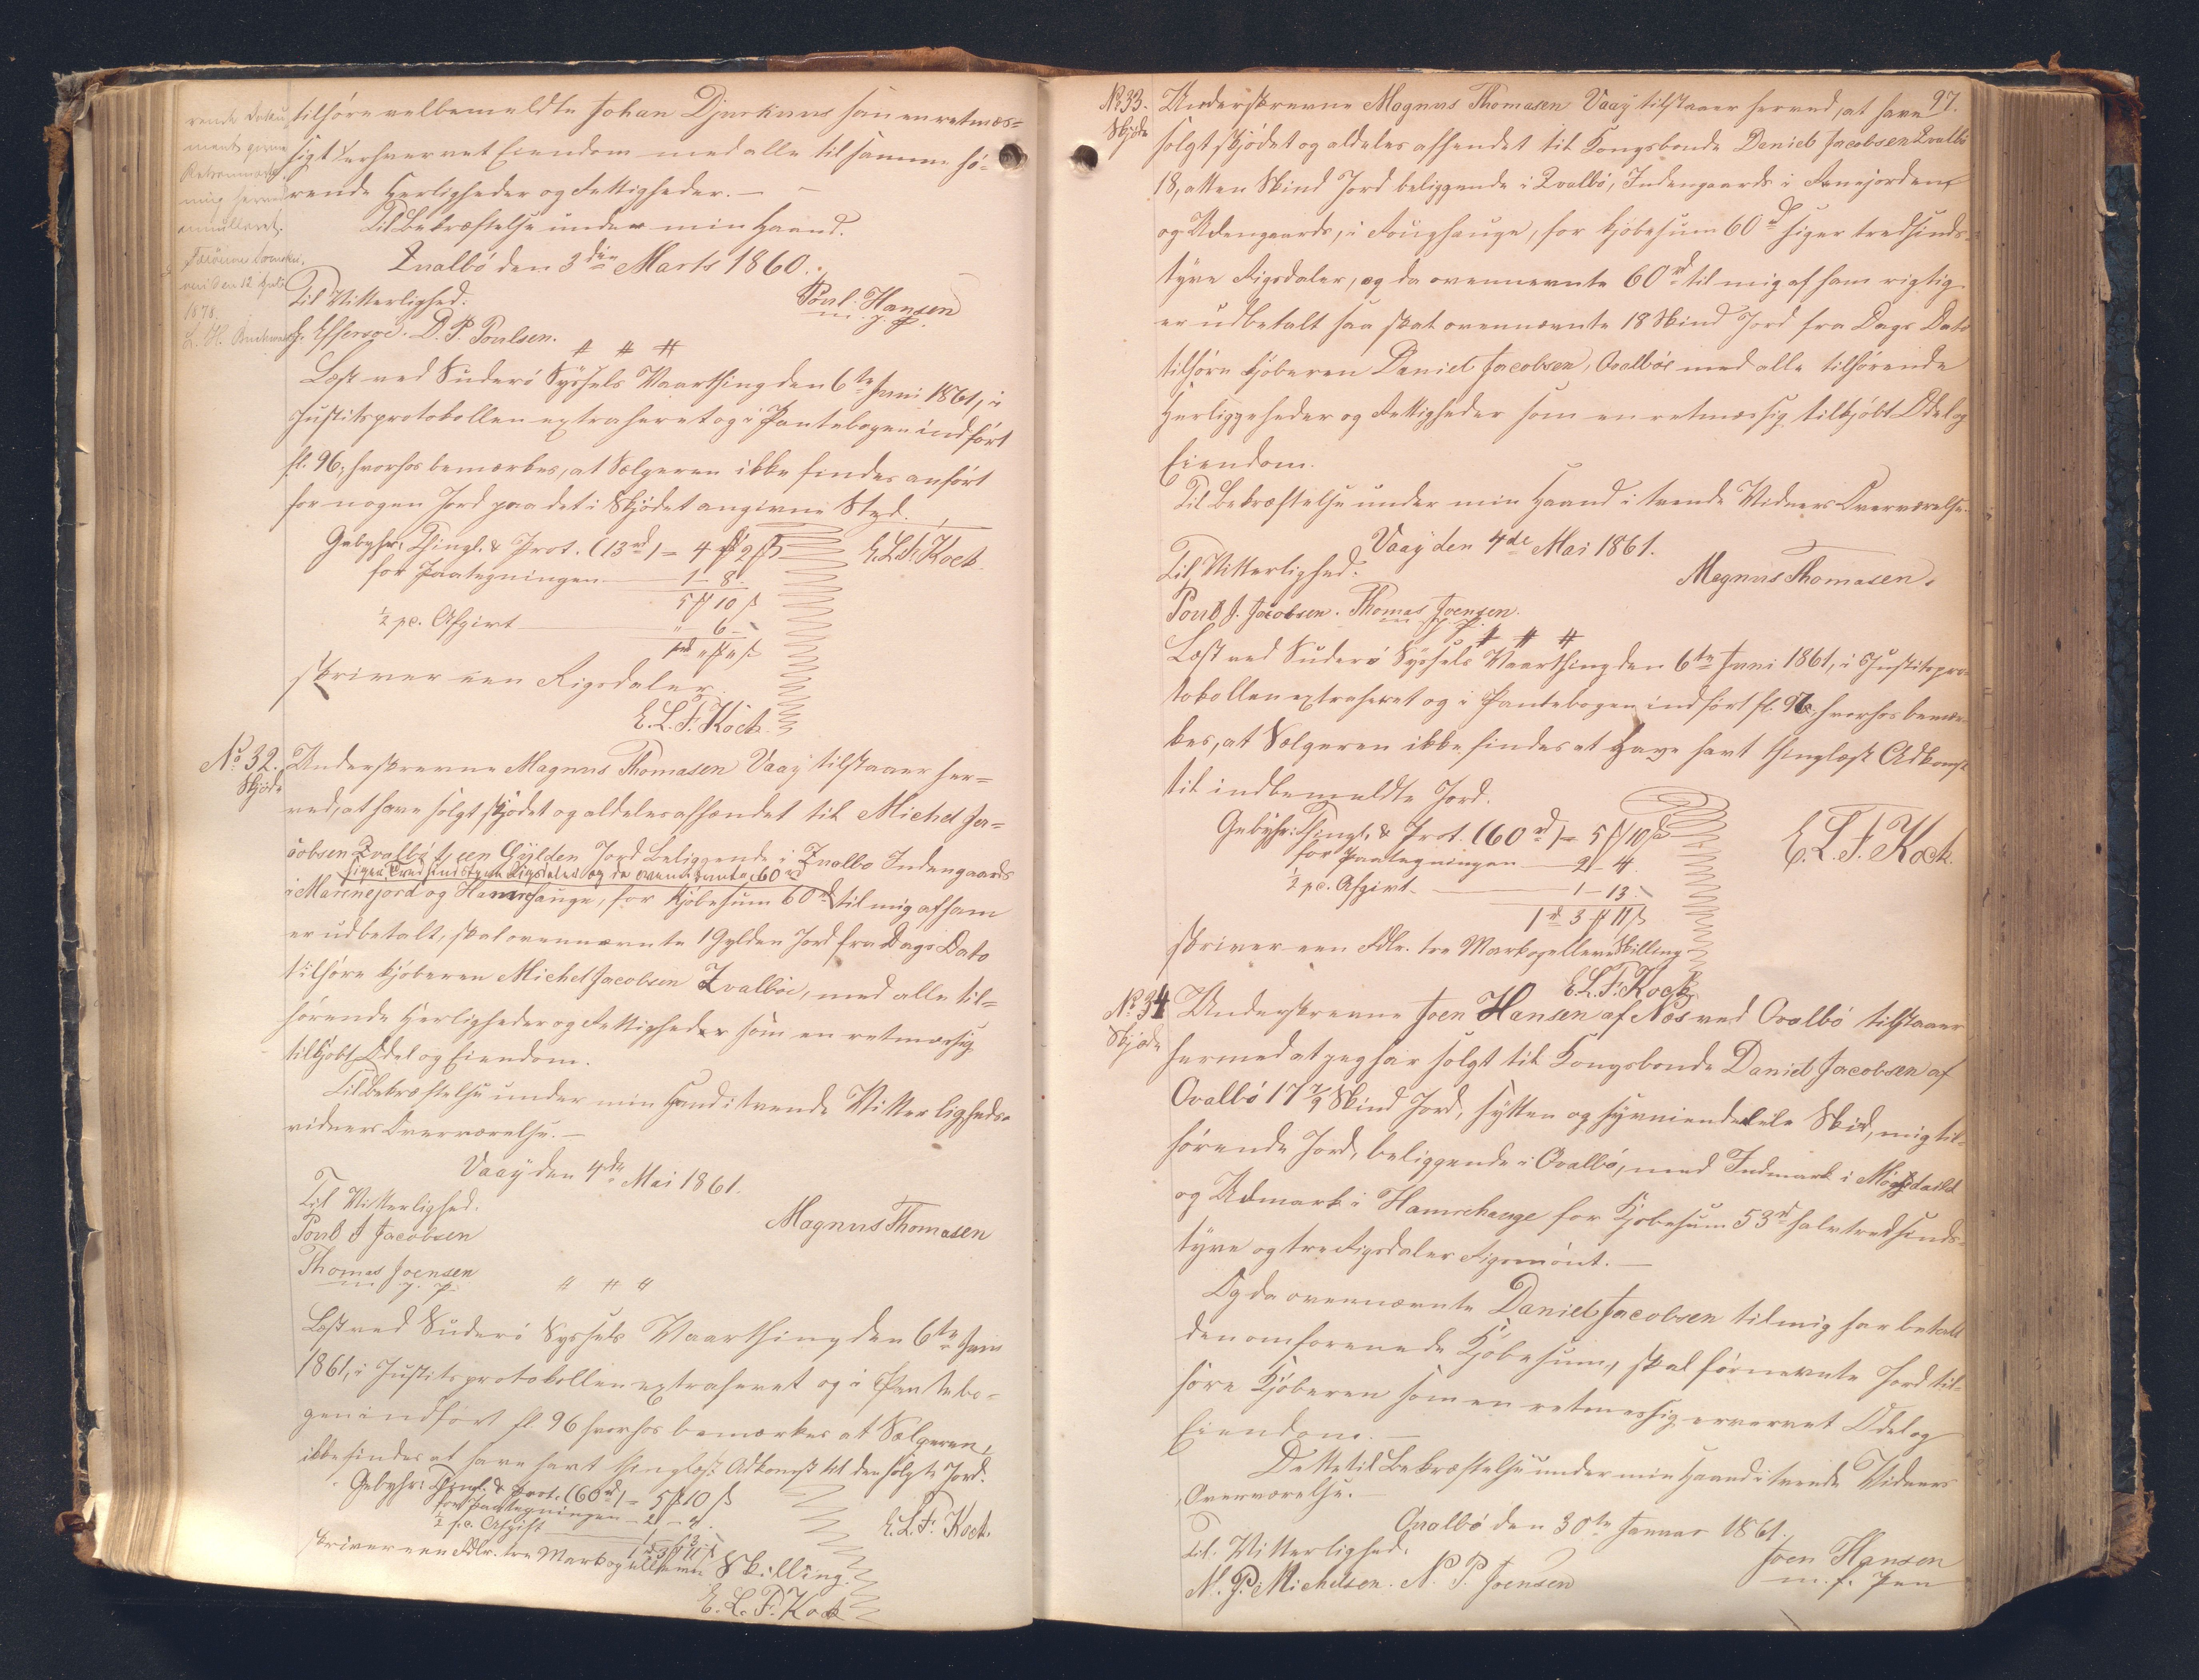 rende Doku-
ments gjen-
mig herved
annulleret.
Færöerne Sorenskri-
veri den 12 Juli
1878.
tilhøre velbemeldte Johan Djurhuus som en retmæs=
sigt erhvervet Eiendom med alle til samme hø=
rende Herligheder og Rettigheder. —
Til Bekræftelse under min Haand.
Qvalbö den 3die Marts 1860.
Til Vitterlighed.
Poul Hansen
m. f. P.
J. Effersøe. D. P. Poulsen.
# # #
Læst ved Suderö Syssels Vaarthing den 6te Juni 1861, i
Justitsprotokollen extraheret og i Pantebogen indført
fl. 96, hvorhos bemærkes, at Sælgeren ikke findes anført
for nogen Jord paa det i Skjødet angivne Sted.
Gebyhr: Thingl. & Prot. (13 rd) = 4 # 2 ß
E. L. F. Koch.
for Paategningen — 1 - 8 -
5 # 10 ß
½ pc. Afgivt — " 6 -
1 rd " # " ß
skriver een Rigsdaler.
E. L. F. Koch.
No 32.
Skjøde
Underskrevne Magnus Thomasen Vaaÿ tilstaaer her=
ved, at have solgt skjødet og aldeles afhændet til Michel Ja=
cobsen Qvalbö 1, een Gÿlden Jord beliggende i Qvalbo Indengaards
siger Tredsindstyve Rigsdaler og da ovennævnte 60 rd
i Marinejord og Hamrehauge, for Kjøbesum 60 rd til mig af ham
er udbetalt, skal ovennævnte 1 Gylden Jord fra Dags Dato
tilhøre Kjøberen Michel Jacobsen Qvalböe, med alle til=
hørende Herligheder og Rettigheder som en retmæssig
tilkjøbt Odel og Eiendom.
Til Bekræftelse under min Haand i tvende Vitterligheds=
vidners Overværelse. —
Vaaÿ den 4de Mai 1861.
Til Vitterlighed.
Magnus Thomasen
Poul J Jacobsen
Thomas Joensen
m. f. P.
" # "
Læst ved Suderö Syssels Vaarthing den 6te Juni
1861, i Justitsprotokollen extraheret og i Pantebo=
gen indført fl. 96 hvorhos bemærkes at Sælgeren,
ikke findes at have havt thinglæst Adkomst til den solgte Jord.
Gebyhr: Thingl. & Prot. (60 rd) = 5 # 10 ß
for Paategningen — 2 - 4.
E. L. F. Koch.
½ p.c. Afgift — 1 - 13 -
1 rd 3 # 11 ß
skriver een Rdlr. tre Mark og elleve Skilling.
E. L. F. Koch
97.
No 33.
Skjøde
Underskrevne Magnus Thomasen Vaaÿ tilstaaer herved, at have
solgt skjødet og aldeles afhendet til Kongsbonde Deniel Jacobsen Qvalbö
18, atten Skind Jord beliggende i Qvalbö, Indengaards i
og Udengaards, i for Kjøbesum 60 rd siger tredsinds=
tÿve Rigsdaler, og da ovennævnte 60 rd til mig af ham rigtig
er udbetalt saa skal ovennævnte 18 Skind Jord fra Dags Dato
tilhøre Kjøberen Daniel Jacobsen, Qvalböe med alle tilhørende
Herliggeheder og Rettigheder som en retmæssig tilkjøbt Odel og
Eiendom.
Til Bekræftelse under min Haand i tvende Vidners Overværelse.
Vaaÿ den 4de Mai 1861.
Til Vitterlighed.
Magnus Thomasen.
Poul J. Jacobsen. Thomas Joensen.
m. f. P.
# # #
Læst ved Suderö Syssels Vaarthing den 6te Juni 1861, i Justitspro=
tokollen extraheret og i Pantebogen indført fl. 96, hvorhos bemær=
kes, at Sælgeren ikke findes at have havt thinglæst Adkomst
til indbemeldte Jord.
Gebyhr: Thingl. & Prot. (60 rd) = 5 # 10 ß
for Paategningen — 2 - 4.
E. L. F. Koch.
½ pc. Afgivt — 1 - 13 -
1 rd 3 # 11 ß
skriver een Rdlr. tre Mark og elleve Skilling
E. L. F. Koch
No 34
Skjøde
Underskrevne Joen Hansen af Nös ved Qvalbö tilstaaer
hermed at jeg har solgt til Kongsbonde Daniel Jacobsen af
Qvalbö 17 7/9 Skind Jord, sÿtten og sÿvniendedele Skind, mig til=
hørende Jord, beliggende i Qvalbö, med Indmark i
og Udmark i Hamrehauge for Kjøbesum 53 rd halvtredsinds=
tÿve og tre Rigsdaler Rigsmönt. —
Og da ovennævnte Daniel Jacobsen til mig har betalt
den omforenede Kjøbesum, skal förnevnte Jord til=
høre Kjøberen som en retmessig erværvet Odel og
Eiendom. —
Dette til Bekræftelse under min Haand i tvende Vidners
Overværelse. —
Qvalbö den 30te Januar 1861.
Til Vitterlighed.
Joen Hansen
m. f. Pen
N. J. Michelsen. N. P. Joensen